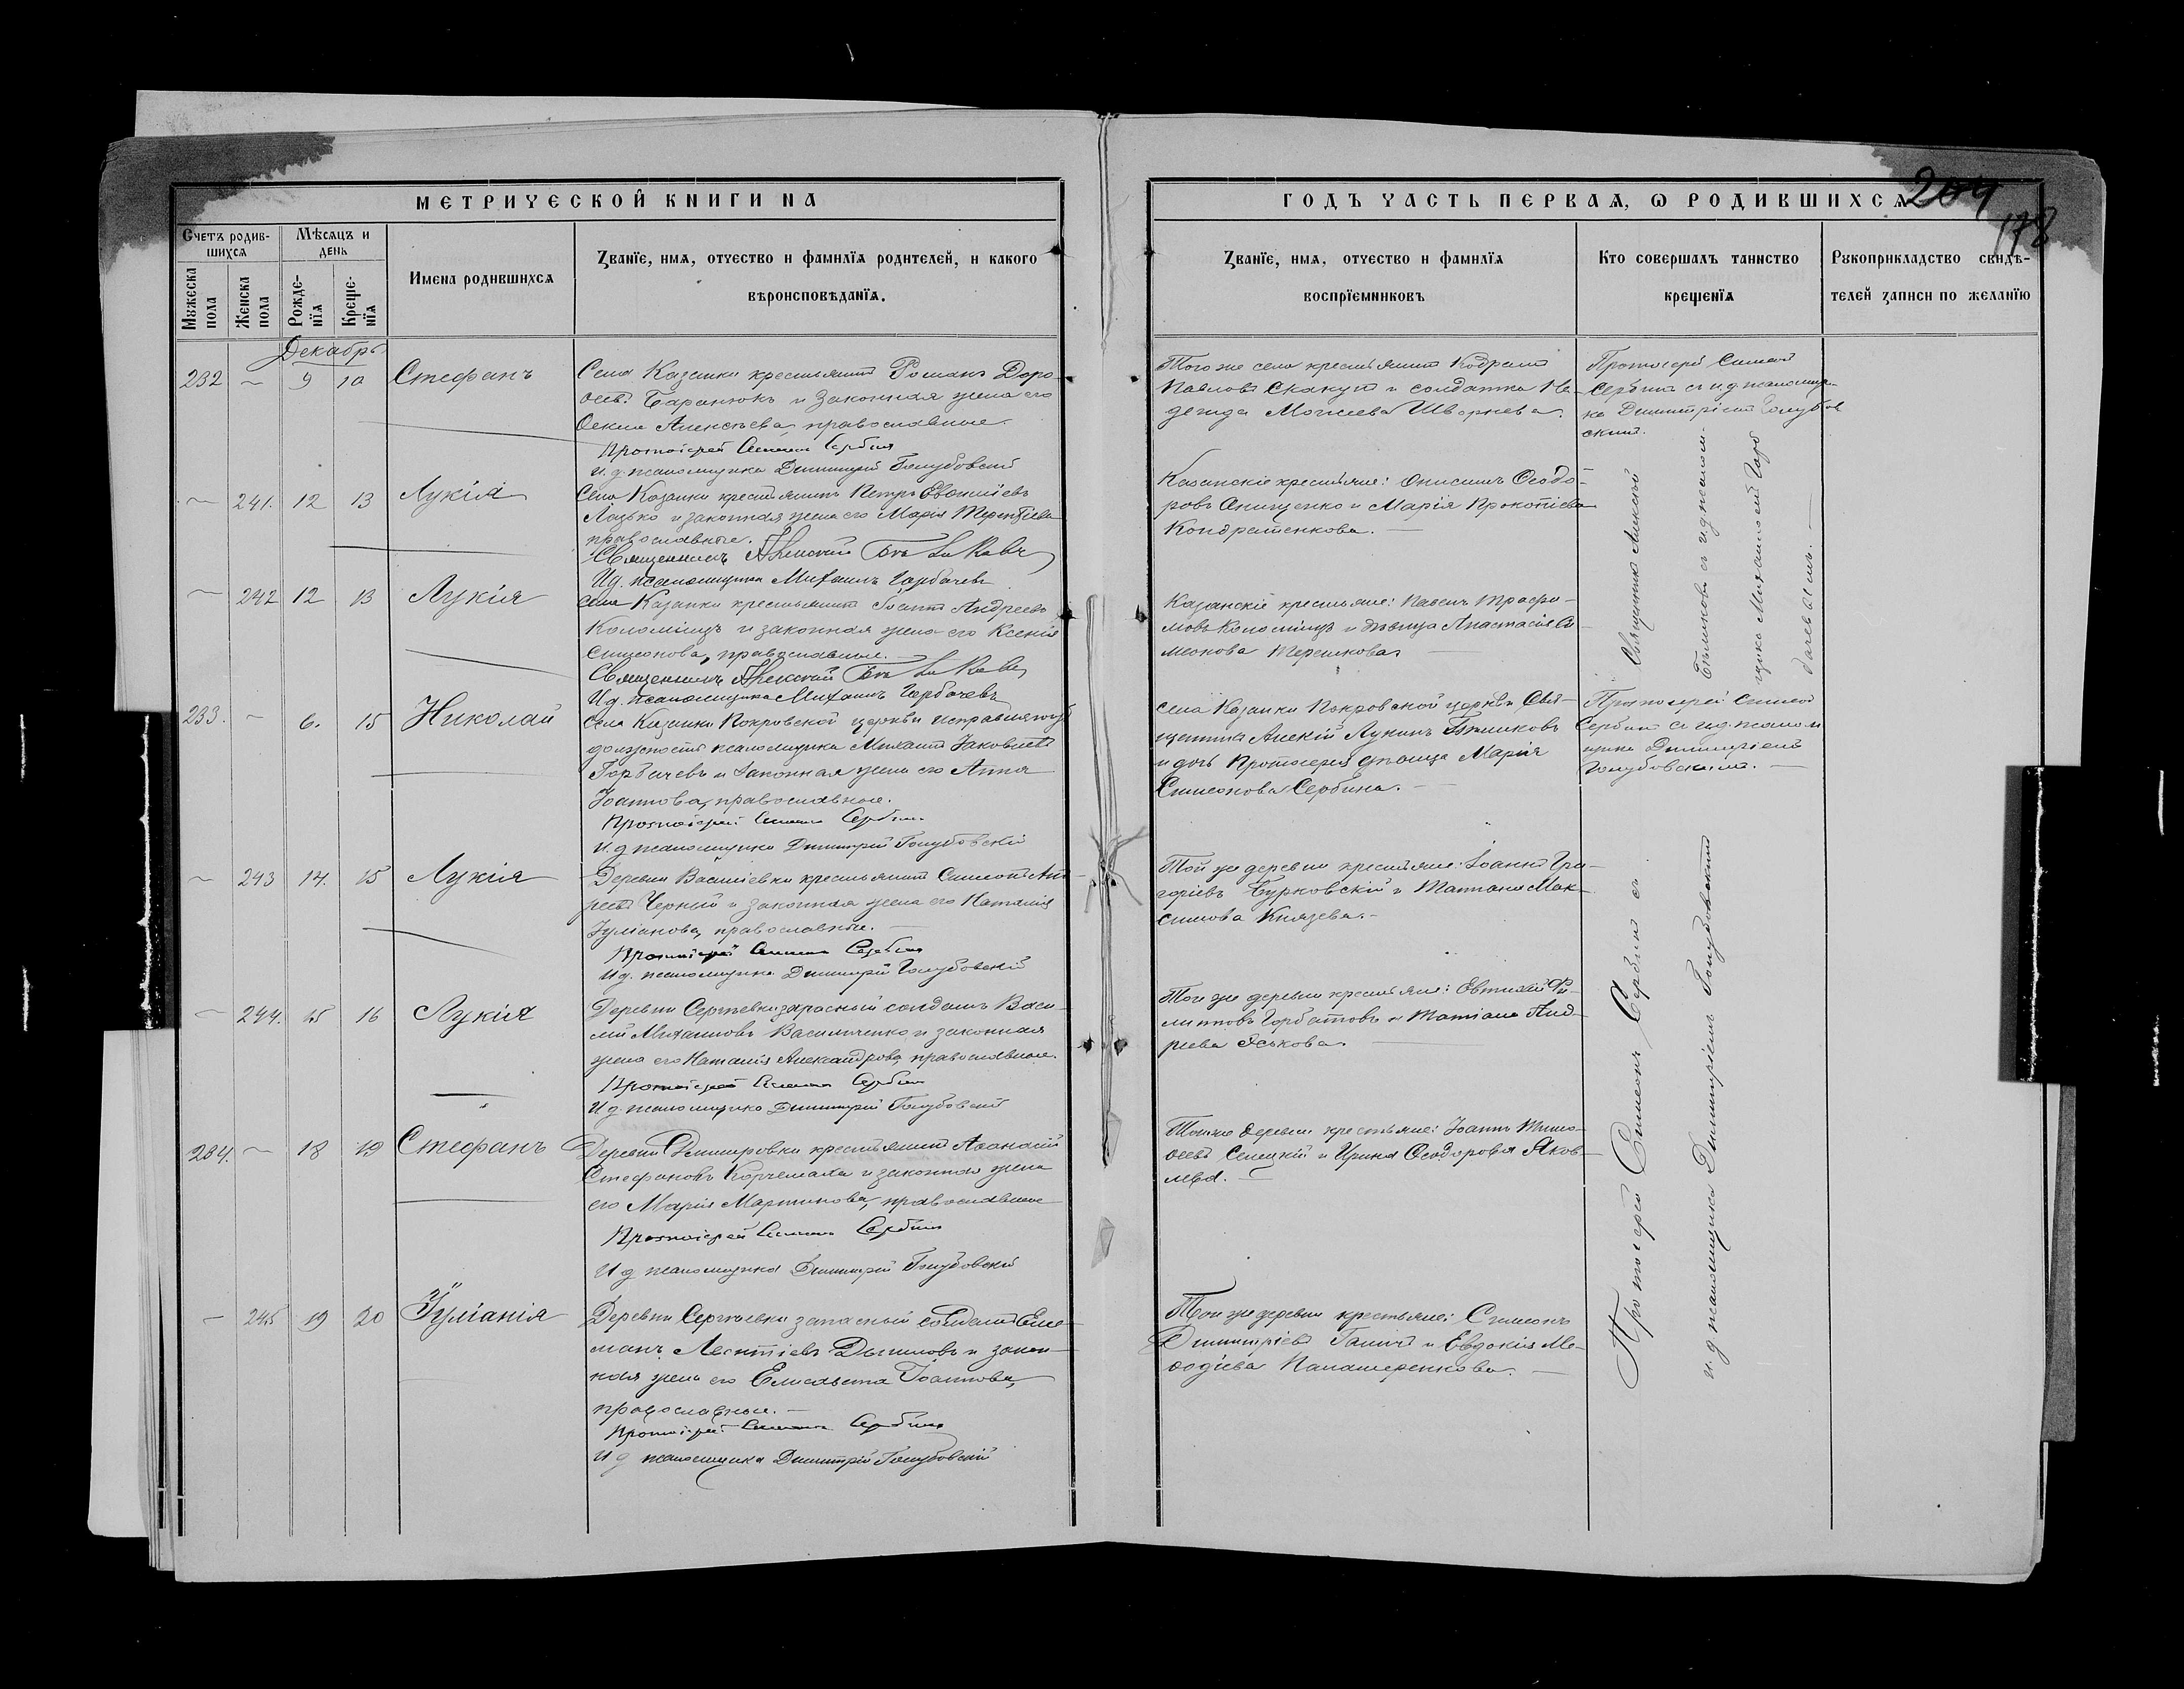 МЕТРИЧЕСКОЙ КНИГИ НА
Счетъ родив-
шихся
Мѣсяцъ и
день
Мужеска
пола
Женска
пола
Рожде-
нїя
Креще-
нїя
Имена родившихся
Званїе, имя, отчество и фамилїя родителей, и какого
вѣроисповѣданїя.
Декабрь
232 — 9 10 Стефанъ
Села Казанки крестьянинъ Романъ Доро-
ѳеевъ Баранюкъ и законная жена его
Ѳекла Алексѣева, православные.
Протоіерей Симеонъ Сербинъ
И. д. псаломщика Димитрій Голубовскій
— 241. 12 13 Лукія
Села Казанки крестьянинъ Петръ Евѳиміевъ
Лазько и законная жена его Марія Терентіева
православные.
Священникъ Алексій Бѣликовъ
И.д. псаломщика Михаилъ Горбачевъ
— 242 12 13 Лукія
Села Казанки крестьянинъ Іоаннъ Андреевъ
Коломіецъ и законная жена его Ксенія
Симеонова, православные.
Священникъ Алексій Бѣликовъ
И.д. псаломщика Михаилъ Горбачевъ
233. — 6. 15 Николай
Села Казанки Покровской церкви исправляющій
должность псаломщика Михаилъ Іаковлевъ
Горбачевъ и законная жена его Анна
Іоаннова, православные.
Протоіерей Симеонъ Сербинъ
И. д псаломщика Димитрій Голубовскій
— 243 14. 15 Лукія
Деревни Васильевки крестьянинъ Симеонъ Анд-
реевъ Черный и законная жена его Наталія
Іуліанова, православные.
Протоіерей Симеонъ Сербинъ
И д. псаломщика Димитрій Голубовскій
— 244. 15 16 Лукія
Деревни Сергѣевки запасный солдатъ Васи-
лій Михаиловъ Василиченко и законная
жена его Наталія Александрова, православные.
Протоіерей Симеонъ Сербинъ
И д. псаломщика Димитрій Голубовскій
234. — 18 19 Стефанъ
Деревни Димитровки крестьянинъ Аѳанасій
Стефановъ Корчемаха и законная жена
его Марія Мартинова, православные
Протоіерей Симеонъ Сербинъ
И д псаломщика Димитрій Голубовскій
— 245 19 20 Іуліанія
Деревни Сергѣевки запасный солдатъ
Леонтіевъ и закон-
ная жена его Елисавета Іоаннова,
православные.
Протоіерей Симеонъ Сербинъ
И д псаломщика Димитрій Голубовскій
ГОДЪ ЧАСТЬ ПЕРВАЯ, Ѡ РОДИВШИХСЯ
204
178
Званїе, имя, отчество и фамилїя
воспрїемниковъ
Кто совершалъ таинство
крещенїя
Рукоприкладство свидѣ-
телей записи по желанїю
Того же села крестьянинъ Кодратъ
Павловъ Скакунъ и солдатка На-
дежда Моисеева Шворнева.
Протоіерей Симеонъ
Сербинъ съ и д псаломщи-
ка Димитріемъ Голубов
скимъ.
Казанскіе крестьяне: Онисимъ Ѳеодо-
ровъ Онищенко и Марія Прокопіева
Кондратенкова. —
Казанскіе крестьяне: Павелъ Трофи-
мовъ Коломіецъ и дѣвица Анастасія Си
меонова Терешкова
Священникъ Алексій
Бѣликовъ съ и д псалом-
щика Михаиломъ Горб
бачевымъ. —
Села Казанки Покровской церкви Свя-
щенникъ Алексій Лукинъ Бѣликовъ
и дочь Протоіерея дѣвица Марія
Симеонова Сербина. —
Протоіерей Симеонъ
Сербинъ съ и д. псалом
щика Димитріемъ
Голубовскимъ. —
Той же деревни крестьяне: Іоаннъ Гри-
горіевъ Бурковскій и Татіана Мак-
симова Князева. —
Той же деревни крестьяне: Евтихій Фи-
липповъ Горбатовъ и Татіана Анд-
реева Яськова.
Той же деревни крестьяне: Іоаннъ Тимо-
ѳеевъ Селецкій и Ирина Ѳеодорова Яков-
лева. —
Той же деревни крестьяне: Симеонъ
Димитріевъ Ганичъ и Евдокія Ме-
ѳодіева Паламаренкова. —
Протоіерей Симеонъ Сербинъ съ
и. д псаломщика Димитріемъ Голубовскимъ